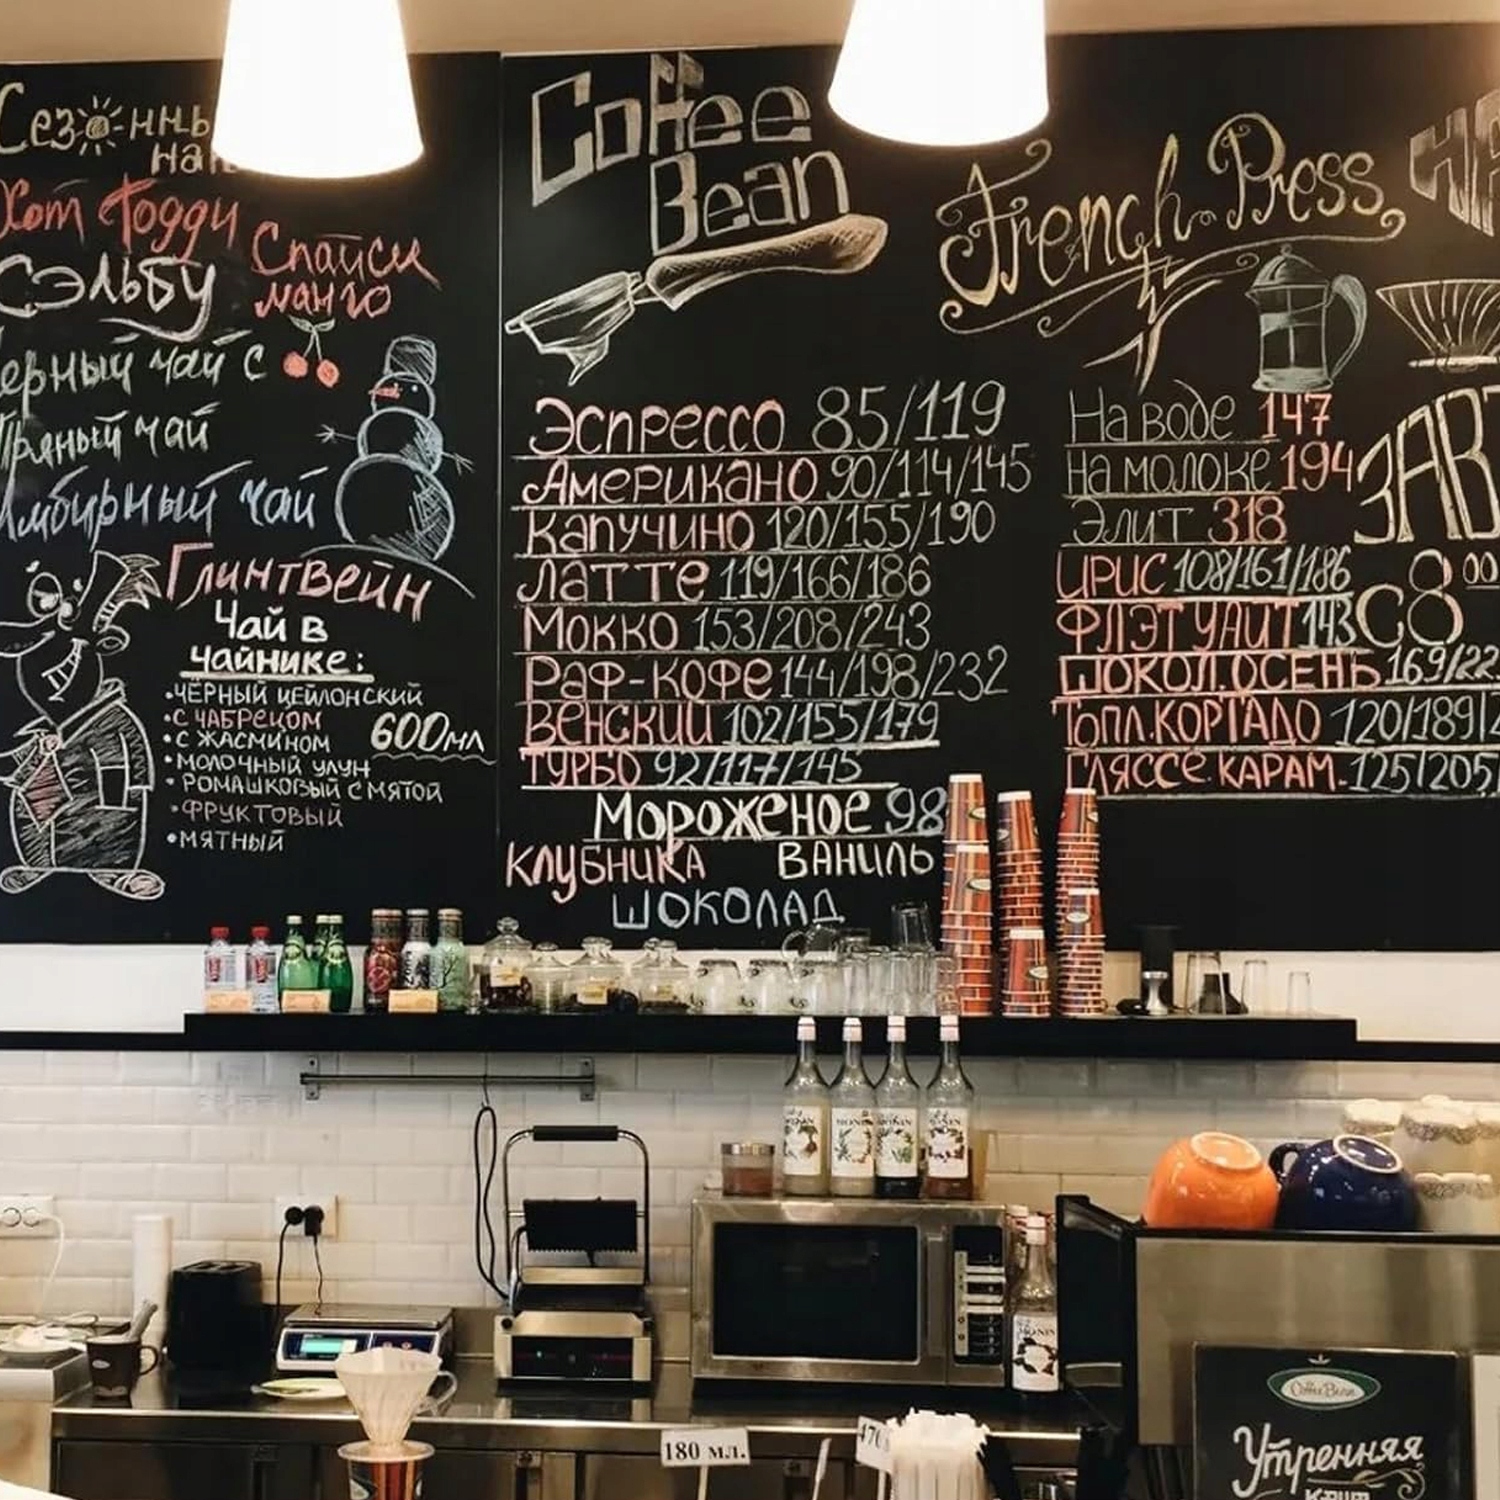 Сезонные
Хот Тодди
Спайси
манго
Сэльбу
черный чай с
Пряный чай
Имбирный чай
Глинтвейн
Чай в
чайнике:
•ЧЁРНЫЙ ЦЕЙЛОНСКИЙ
•С ЧАБРЕЦОМ
•С ЖАСМИНОМ
600мл
•МОЛОЧНЫЙ УЛУН
•РОМАШКОВЫЙ С МЯТОЙ
•ФРУКТОВЫЙ
•МЯТНЫЙ
Coffee
Bean
Эспрессо 85/119
Американо 90/114/145
Капучино 120/155/190
Латте 119/166/186
Мокко 153/208/243
Раф-кофе 144/198/232
Венский 102/155/179
Турбо 92/117/145
Мороженое 98
Клубника Ваниль
Шоколад
French Press
На воде 147
На молоке 194
Элит 318
Ирис 108/161/186
Флэт Уайт 143
Шокол.Осень 169/22
Топл.Кортадо 120/189/2
Гляссе Карам. 125/205/
ЗАВТ
С 8 00
MONIN
MONIN
MONIN
180 мл.
470
Coffee Bean
Утренняя